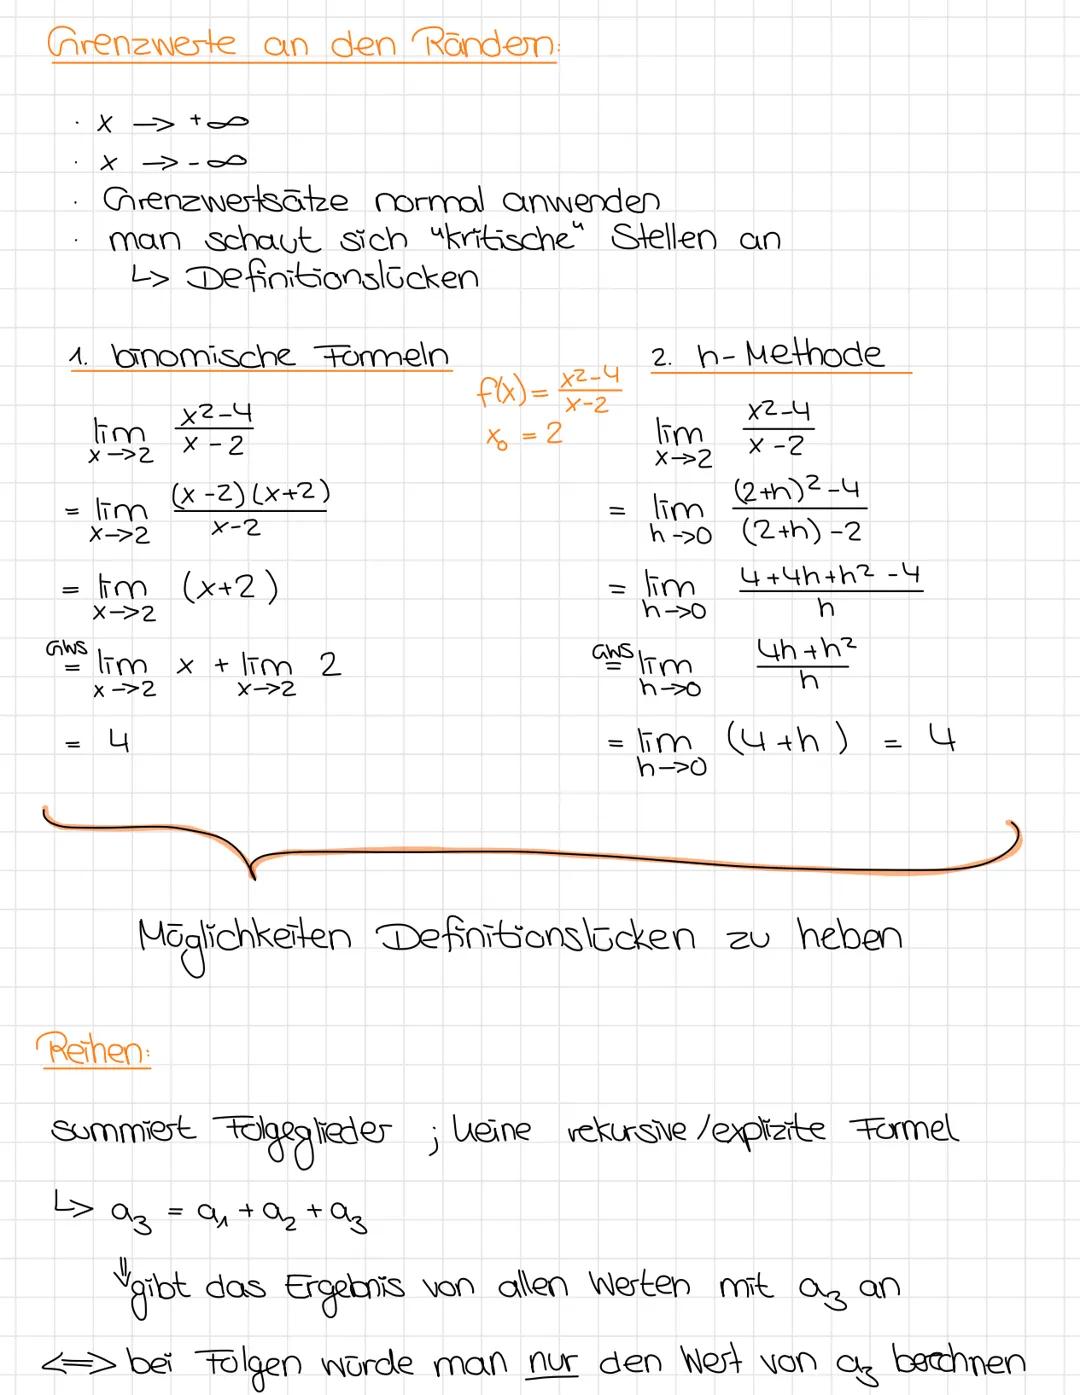 Grenzwerte an den Rändern:
· x → +∞
· x → -∞
· Grenzwertsätze normal anwenden
· man schaut sich "kritische" Stellen an
↳ Definitionslücken
1. binomische Formeln
f(x) = (x²-4)/(x-2)
x₀ = 2
lim x→2 (x²-4)/(x-2)
= lim x→2 ((x-2)(x+2))/(x-2)
= lim x→2 (x+2)
GWS = lim x→2 x + lim x→2 2
= 4
2. h-Methode
lim x→2 (x²-4)/(x-2)
= lim h→0 ((2+h)²-4)/((2+h)-2)
= lim h→0 (4+4h+h²-4)/h
GWS = lim h→0 (4h+h²)/h
= lim h→0 (4+h) = 4
Möglichkeiten Definitionslücken zu heben
Reihen:
summiert Folgeglieder ; keine rekursive/explizite Formel
↳ a₃ = a₁ + a₂ + a₃
⇓ gibt das Ergebnis von allen Werten mit a₃ an
⟺ bei Folgen würde man nur den Wert von a₃ berechnen